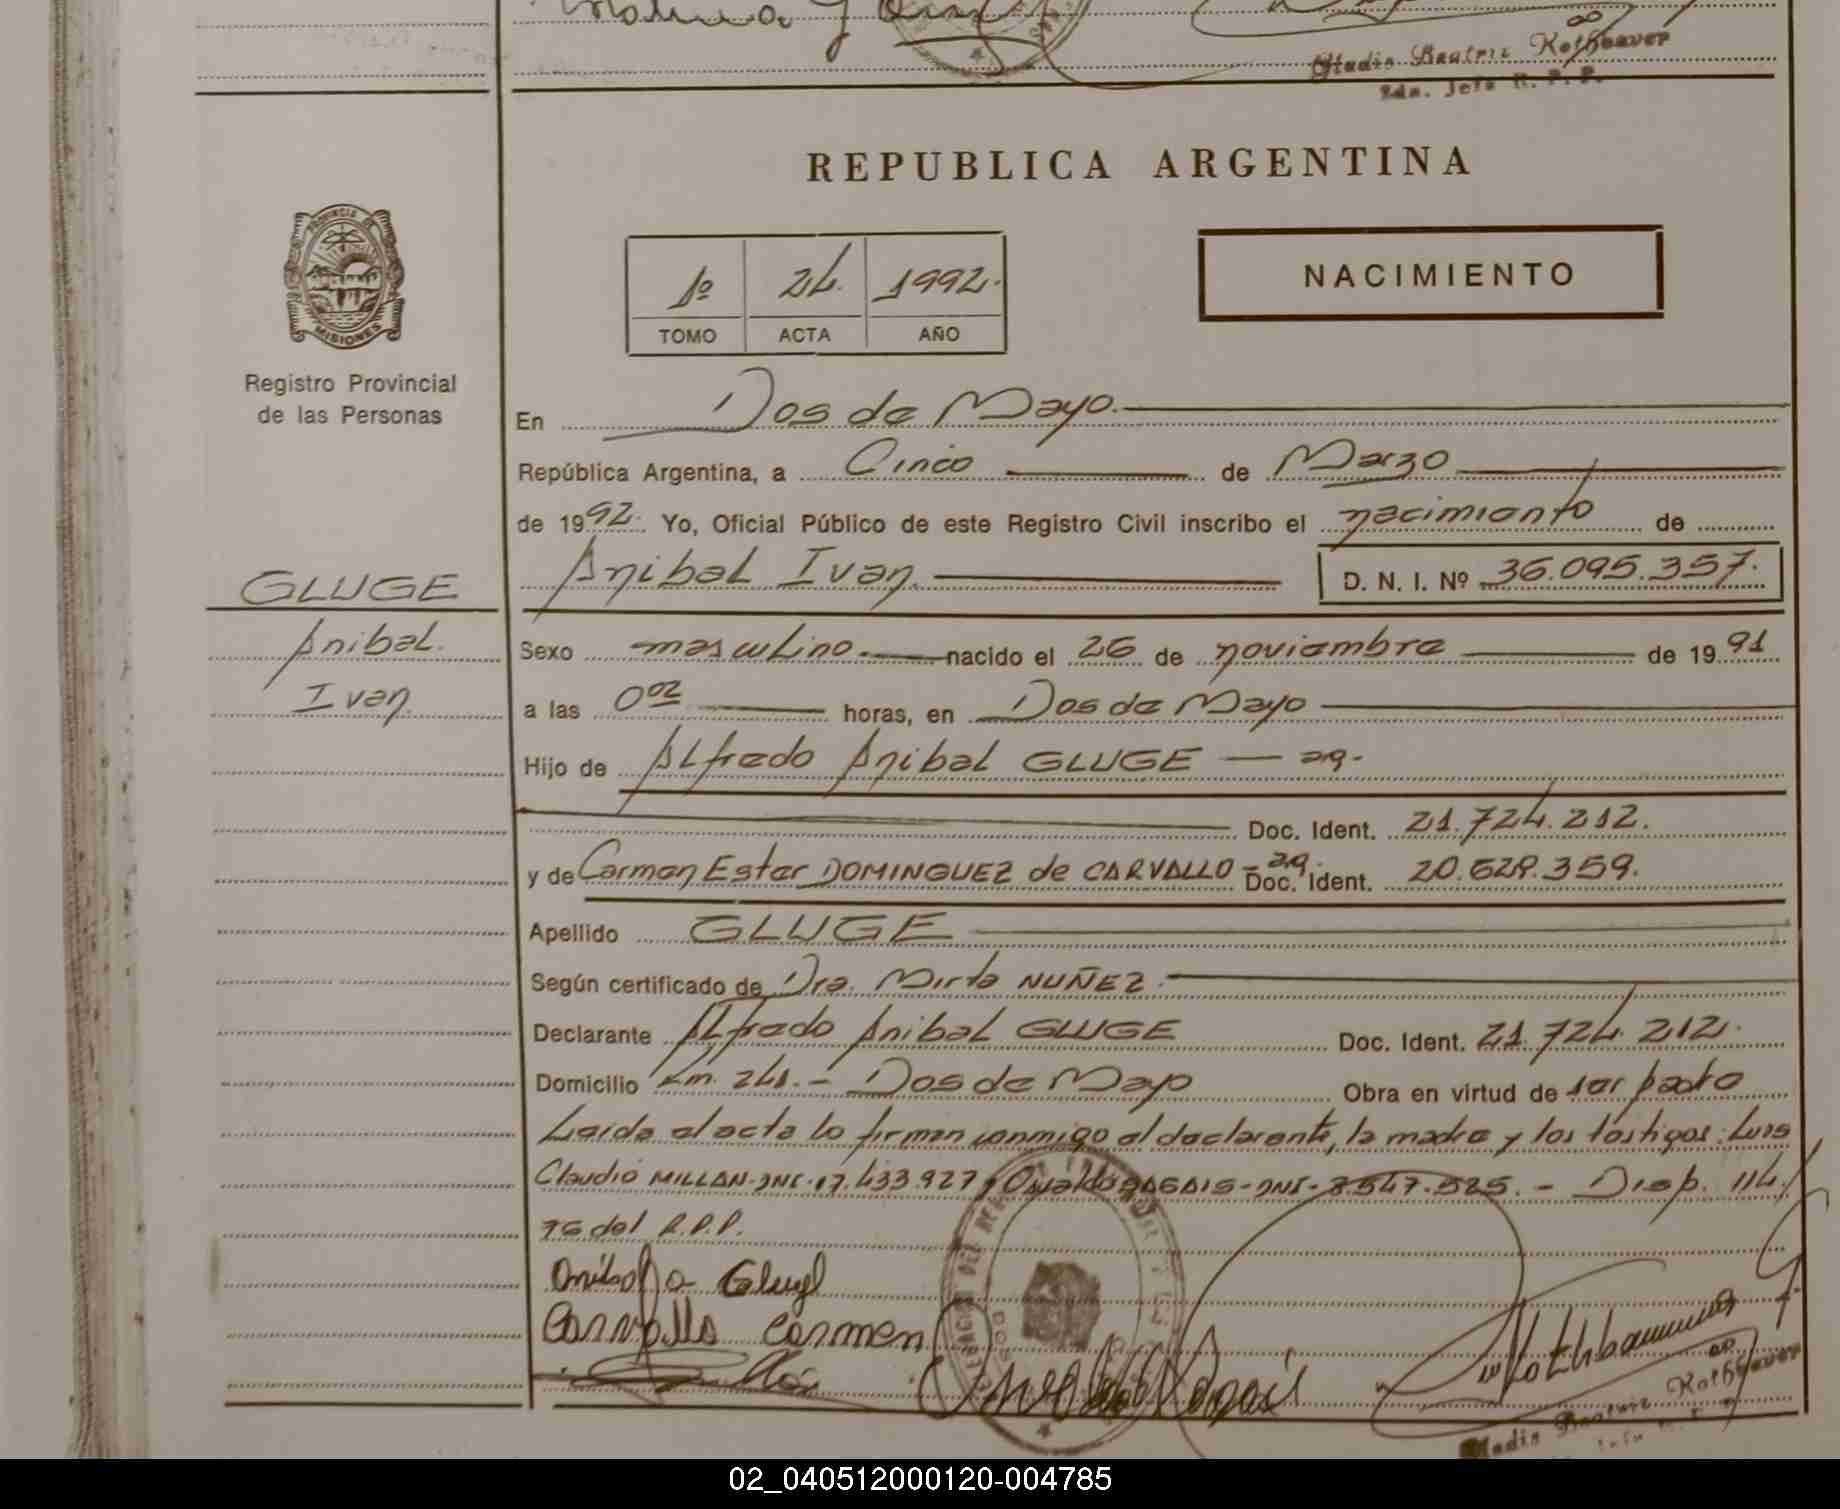 Gladis Beatriz Kothbauer
2da. Jefa R. P. P.
REPUBLICA ARGENTINA
PROVINCIA DE
MISIONES
1º 24. 1992.
TOMO ACTA AÑO
NACIMIENTO
Registro Provincial
de las Personas
En Dos de Mayo.
República Argentina, a Cinco de Marzo
de 1992. Yo, Oficial Público de este Registro Civil inscribo el nacimiento de
Anibal Ivan D. N. I. Nº 36.095.357.
GLUGE
Anibal.
Ivan
Sexo masculino. nacido el 26 de noviembre de 1991
a las 0 02 horas, en Dos de Mayo
Hijo de Alfredo Anibal GLUGE — ag.
Doc. Ident. 21.724.212.
y de Carmen Ester DOMINGUEZ de CARVALLO - ag. Doc. Ident. 20.629.359.
Apellido GLUGE
Según certificado de Dra. Mirta NUÑEZ.
Declarante Alfredo Anibal GLUGE Doc. Ident. 21.724.212.
Domicilio Km. 241. - Dos de Mayo Obra en virtud de ser padre
Leida el acta lo firman conmigo el declarante, la madre y los testigos: Luis
Claudio MILLAN-DNI-17.433.927 y Osvaldo -DNI-7.547.525. - Disp. 114/
76 del R.P.P.
Carvallo Carmen
Gladis Beatriz Kothbauer
02_040512000120-004785